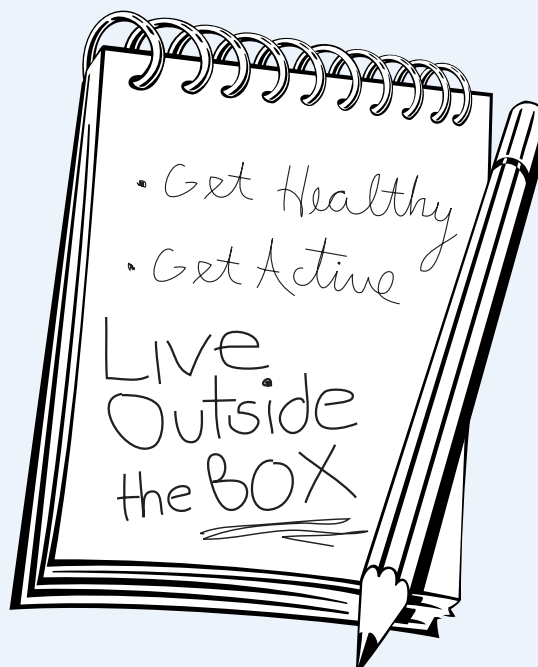 • Get Healthy
• Get Active
Live
Outside
the BOX